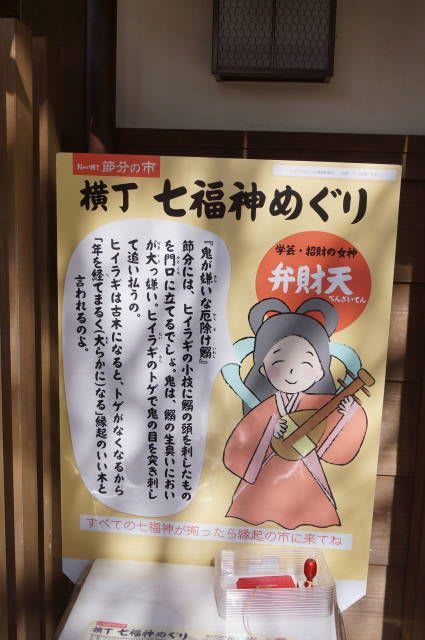 節分の市
横丁 七福神めぐり
学芸・招財の女神
弁財天
べんざいてん
『鬼が嫌いな厄除け鰯』
節分には、ヒイラギの小枝に鰯の頭を刺したもの
を門口に立てるでしょ。鬼は、鰯の生臭いにおい
が大っ嫌い。ヒイラギのトゲで鬼の目を突き刺し
て追い払うの。
ヒイラギは古木になると、トゲがなくなるから
「年を経てまるく（大らかに）なる」縁起のいい木と
言われるのよ。
すべての七福神が揃ったら縁起の市に来てね
横丁 七福神めぐり